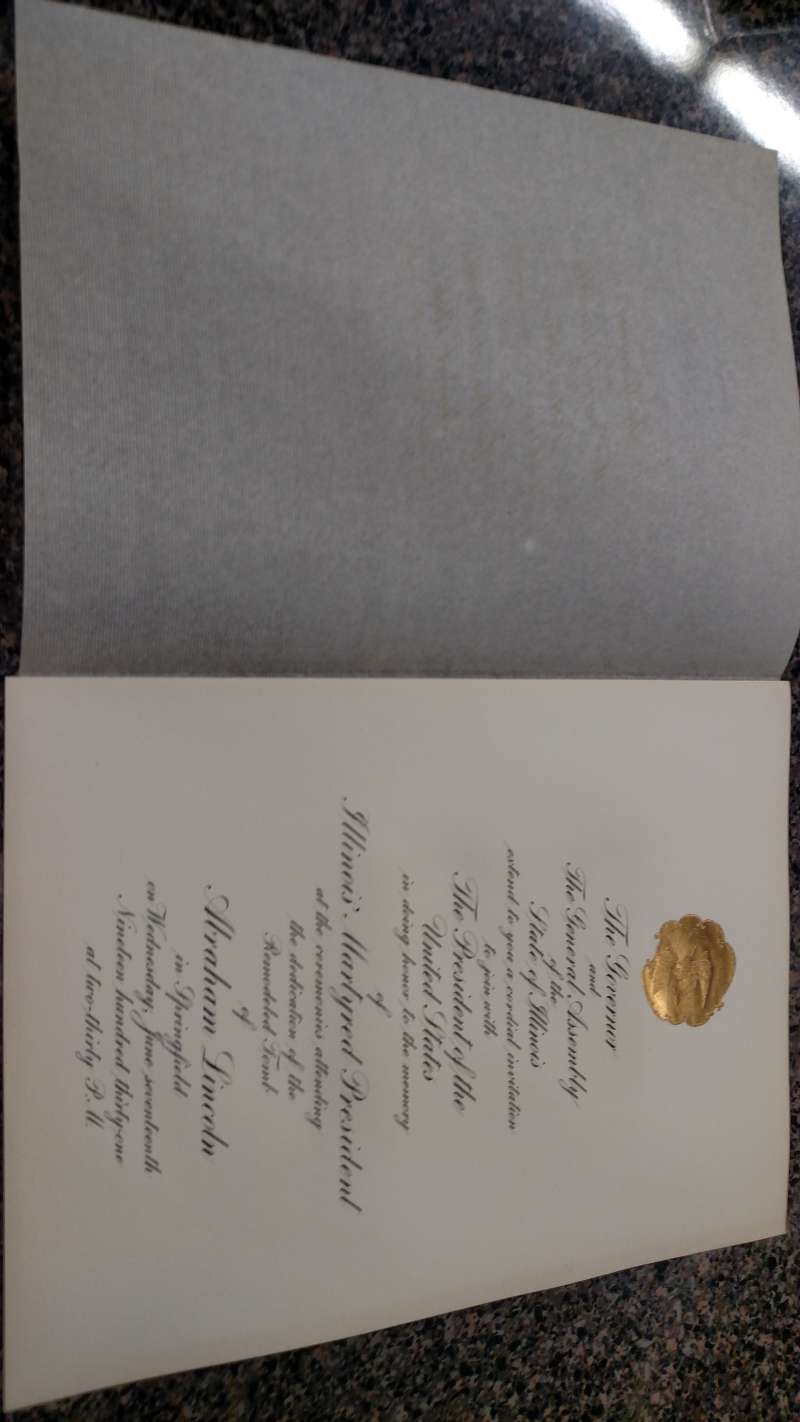 The Governor
and
The General Assembly
of the
State of Illinois
extend to you a cordial invitation
to join with
The President of the
United States
in doing honor to the memory
of
Illinois' Martyred President
at the ceremonies attending
the dedication of the
Remodeled Tomb
of
Abraham Lincoln
in Springfield
on Wednesday, June seventeenth
Nineteen hundred thirty-one
at two-thirty P. M.